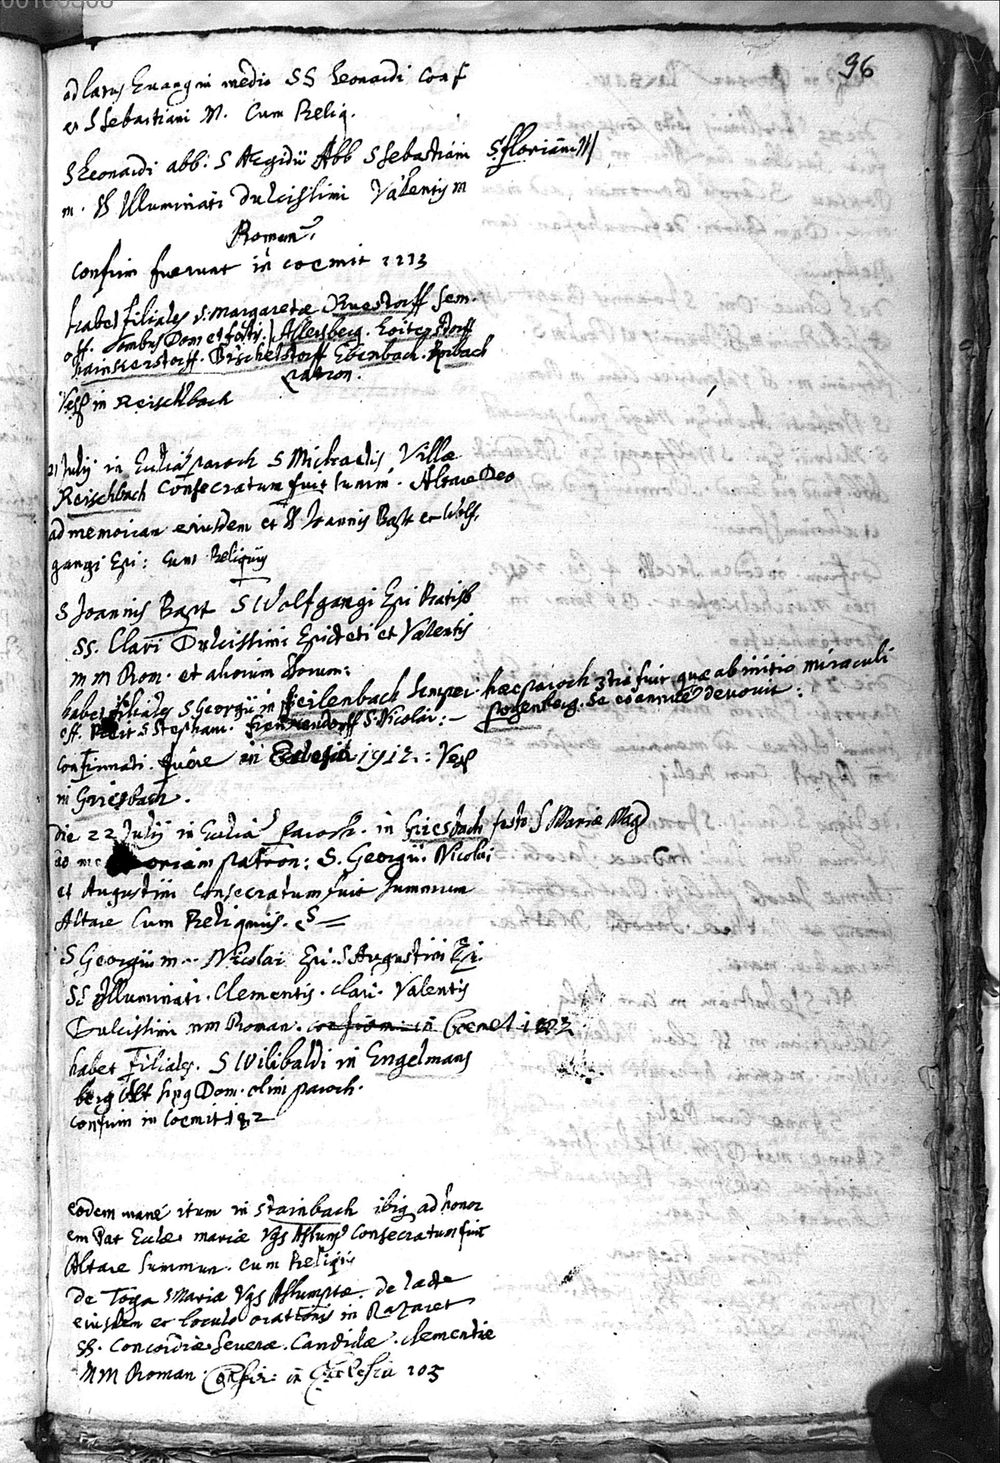 96
ad latus Evang in medio SS Leonardi Conf
et S Sebastiani M. Cum Reliq.
S Leonardi abb: S Aegidii Abb S Sebastiani S. Floriani M
m. SS Illuminati Dulcissimi Valentis m
Roman.
Confirm fuerunt in coemit 1213
habet filiales S. Margaretæ Ruestorff sem.
off. Dom et festis. Aflersberg. Loitersdorff
Hainkerstorff. Bischelstorff Ebenbach. Rorbach
patron.
Vesp in Reischbach
21 Julii in Eccliâ paroch S Michaelis Villæ
Reischbach Consecratum fuit sum. Altare Deo
ad memoriam eiusdem et S Joannis Bapt et Wolf-
gangi Epi: cum Reliquiis
S Joannis Bapt S Wolfgangi Epi Ratisb
SS. Clari Dulcissimi Epicteti et Valentis
m m Rom. et aliorum Storum:
habet filiales S Georgii in Heilenbach semper. hæc paroch fuit quæ ab initio miraculi
off. S Stephani. S Nicolai: Pogenberg. se eo devovit:
Confirmati. fuêre in Ecclesia 1912: Vesp
in Griesbach.
Die 22 Julii in Ecclia Paroch. in Griesbach festo S Mariæ Mag
ad memoriam patron: S. Georgii. Nicolai
et Augustini consecratum fuit summum
Altare Cum Reliquiis. S
S Georgii m. Nicolai Epi. S Augustini Epi.
SS Illuminati. Clementis. Clari. Valentis
Dulcissimi mm Roman. confirm: in Coemet 182
habet Filiales. S Wilibaldi in Engelmans
berg Alt sing Dom. olim paroch.
Confirm in Coemit 182
eodem mane iterum in Stainbach ibig ad honor
em Par Eccle. mariæ Vgs Assump Consecratum fuit
Altare Summum. cum Reliqiis
de Toga S Mariæ Vgs Assumptæ. de lacte
eiusdem et loculo orationis in Nazaret
SS. Concordiæ Severæ. Candidæ. Clementiæ
MM Roman. Confir: in Ecclesia 103